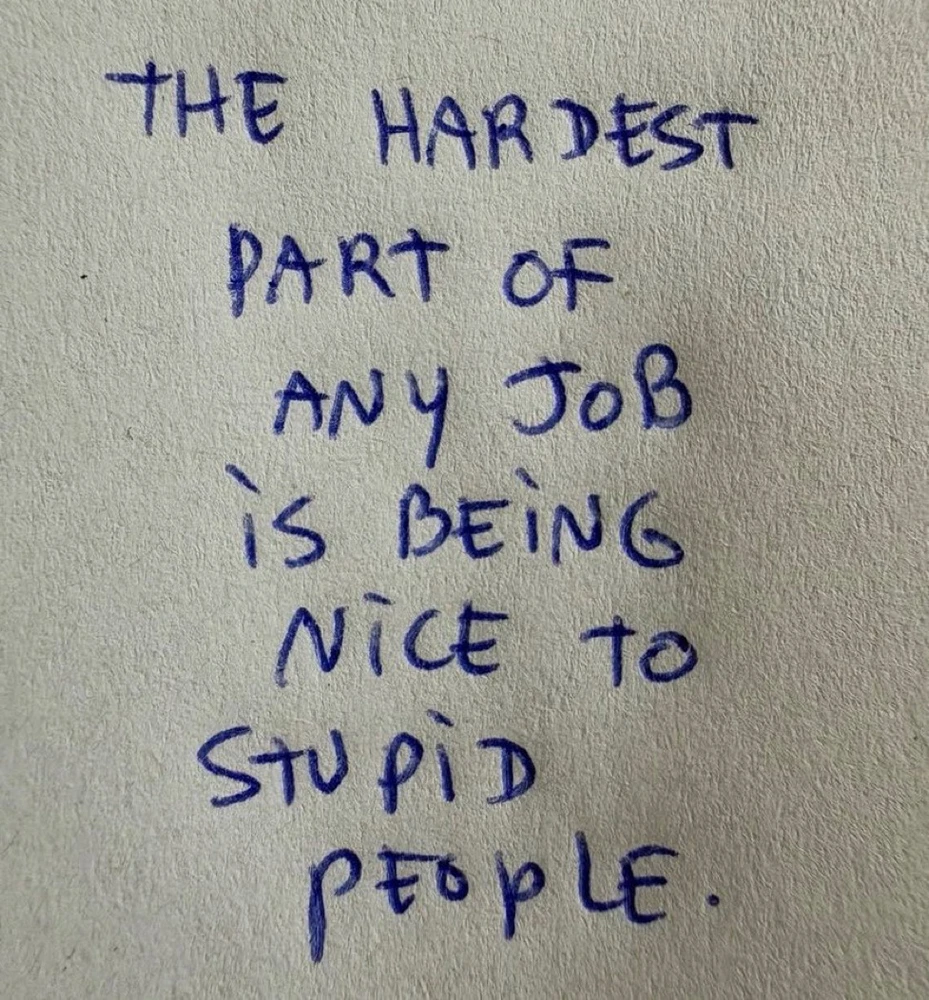 THE HARDEST
PART OF
ANY JOB
iS BEiNG
NiCE TO
STUPiD
PEOPLE.